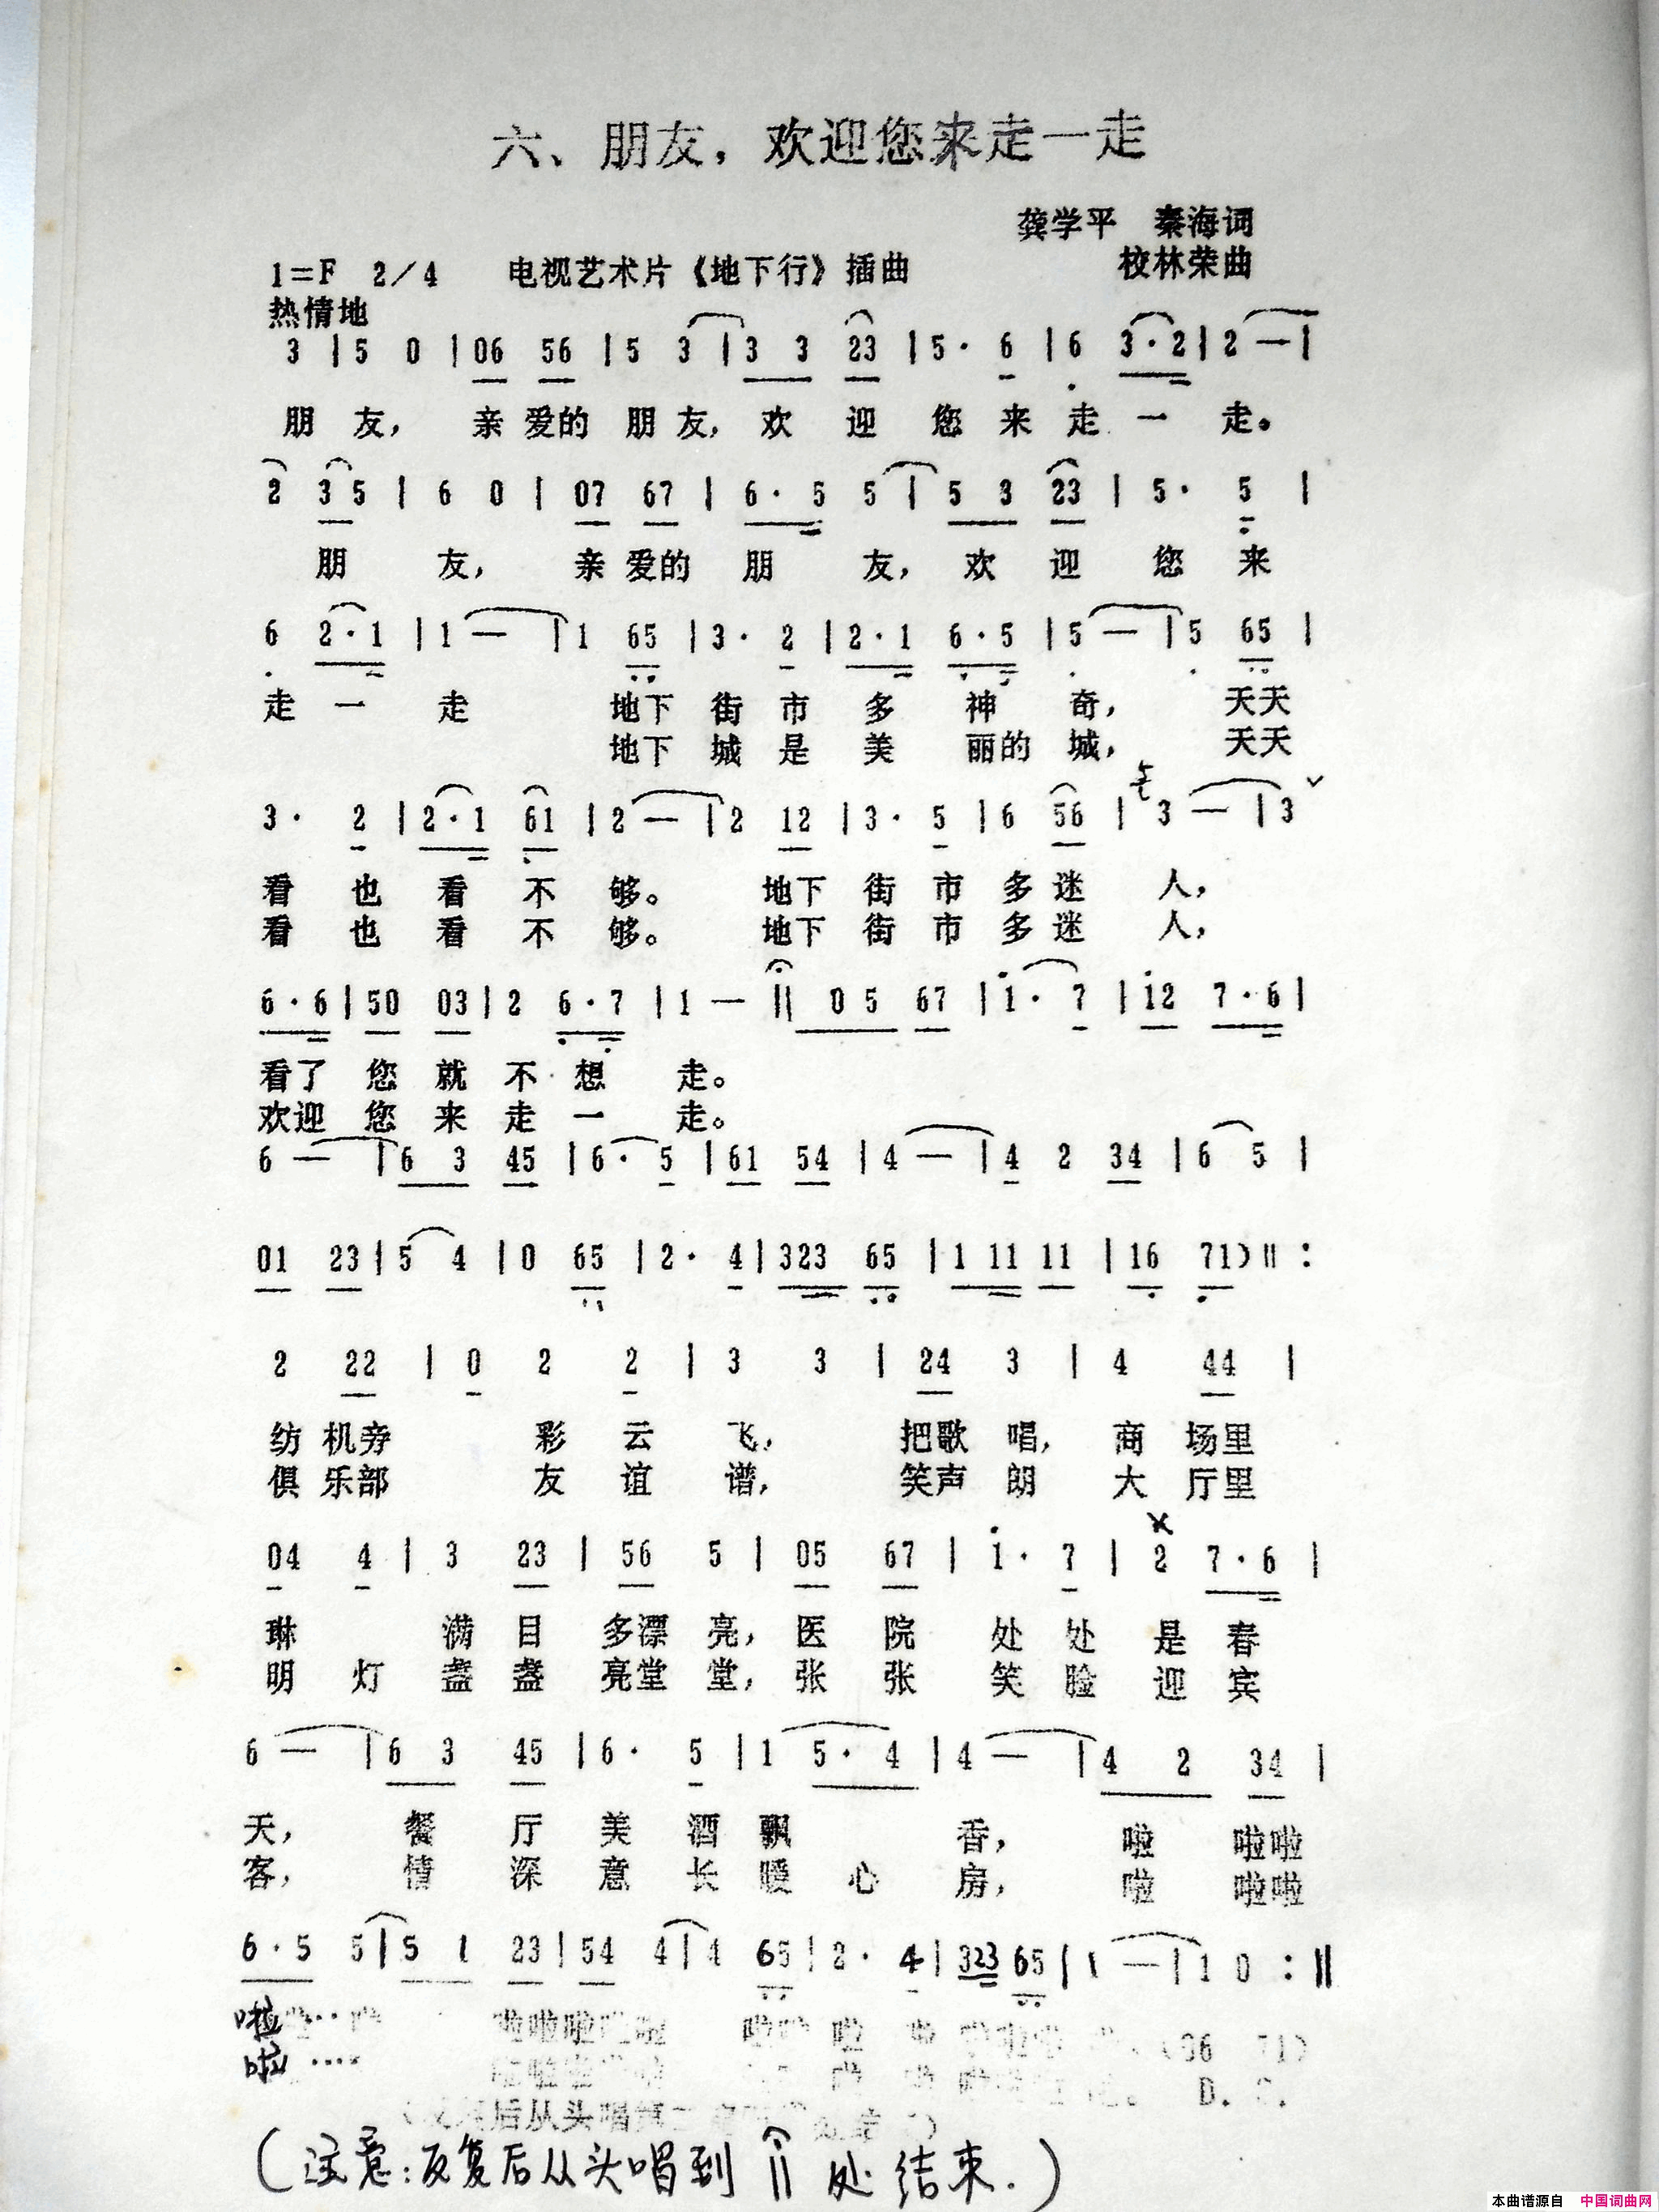 六、朋友，欢迎您来走一走
龚学平 秦海词
1=F 2/4 电视艺术片《地下行》插曲 校林荣曲
热情地
3 | 5 0 | 06 56 | 5 3 | 3 3 23 | 5· 6 | 6 3·2 | 2 — |
朋 友， 亲 爱的 朋 友， 欢 迎 您 来 走 一 走。
2 35 | 6 0 | 07 67 | 6·5 5 | 5 3 23 | 5· 5 |
朋 友， 亲 爱的 朋 友， 欢 迎 您 来
6 2·1 | 1 — | 1 65 | 3· 2 | 2·1 6·5 | 5 — | 5 65 |
走 一 走 地下 街 市 多 神 奇， 天天
地下 城 是 美 丽的 城， 天天
3· 2 | 2·1 61 | 2 — | 2 12 | 3· 5 | 6 56 | 3 — | 3
看 也 看 不 够。 地下 街 市 多 迷 人，
看 也 看 不 够。 地下 街 市 多 迷 人，
6·6 | 50 03 | 2 6·7 | 1 — || 0 5 67 | 1· 7 | 12 7·6 |
看了 您 就 不 想 走。
欢迎 您 来 走 一 走。
6 — | 6 3 45 | 6· 5 | 61 54 | 4 — | 4 2 34 | 6 5 |
01 23 | 5 4 | 0 65 | 2· 4 | 323 65 | 1 11 11 | 16 71) || :
2 22 | 0 2 2 | 3 3 | 24 3 | 4 44 |
纺 机旁 彩 云 飞， 把歌 唱， 商 场里
俱 乐部 友 谊 谱， 笑声 朗 大 厅里
04 4 | 3 23 | 56 5 | 05 67 | 1· 7 | 2 7·6 |
琳 满 目 多漂 亮， 医 院 处 处 是 春
明 灯 盏 盏 亮堂 堂， 张 张 笑 脸 迎 宾
6 — | 6 3 45 | 6· 5 | 1 5· 4 | 4 — | 4 2 34 |
天， 餐 厅 美 酒 飘 香， 啦 啦啦
客， 情 深 意 长 暖 心 房， 啦 啦啦
6·5 5 | 5 1 23 | 54 4 | 4 65 | 2· 4 | 323 65 | 1 — | 1 0 : ||
啦 啦啦啦 啦 啦
啦 ···· 啦 D.
后从头唱
(注意：反复后从头唱到 || 处结束.)
本曲谱源自 中国词曲网